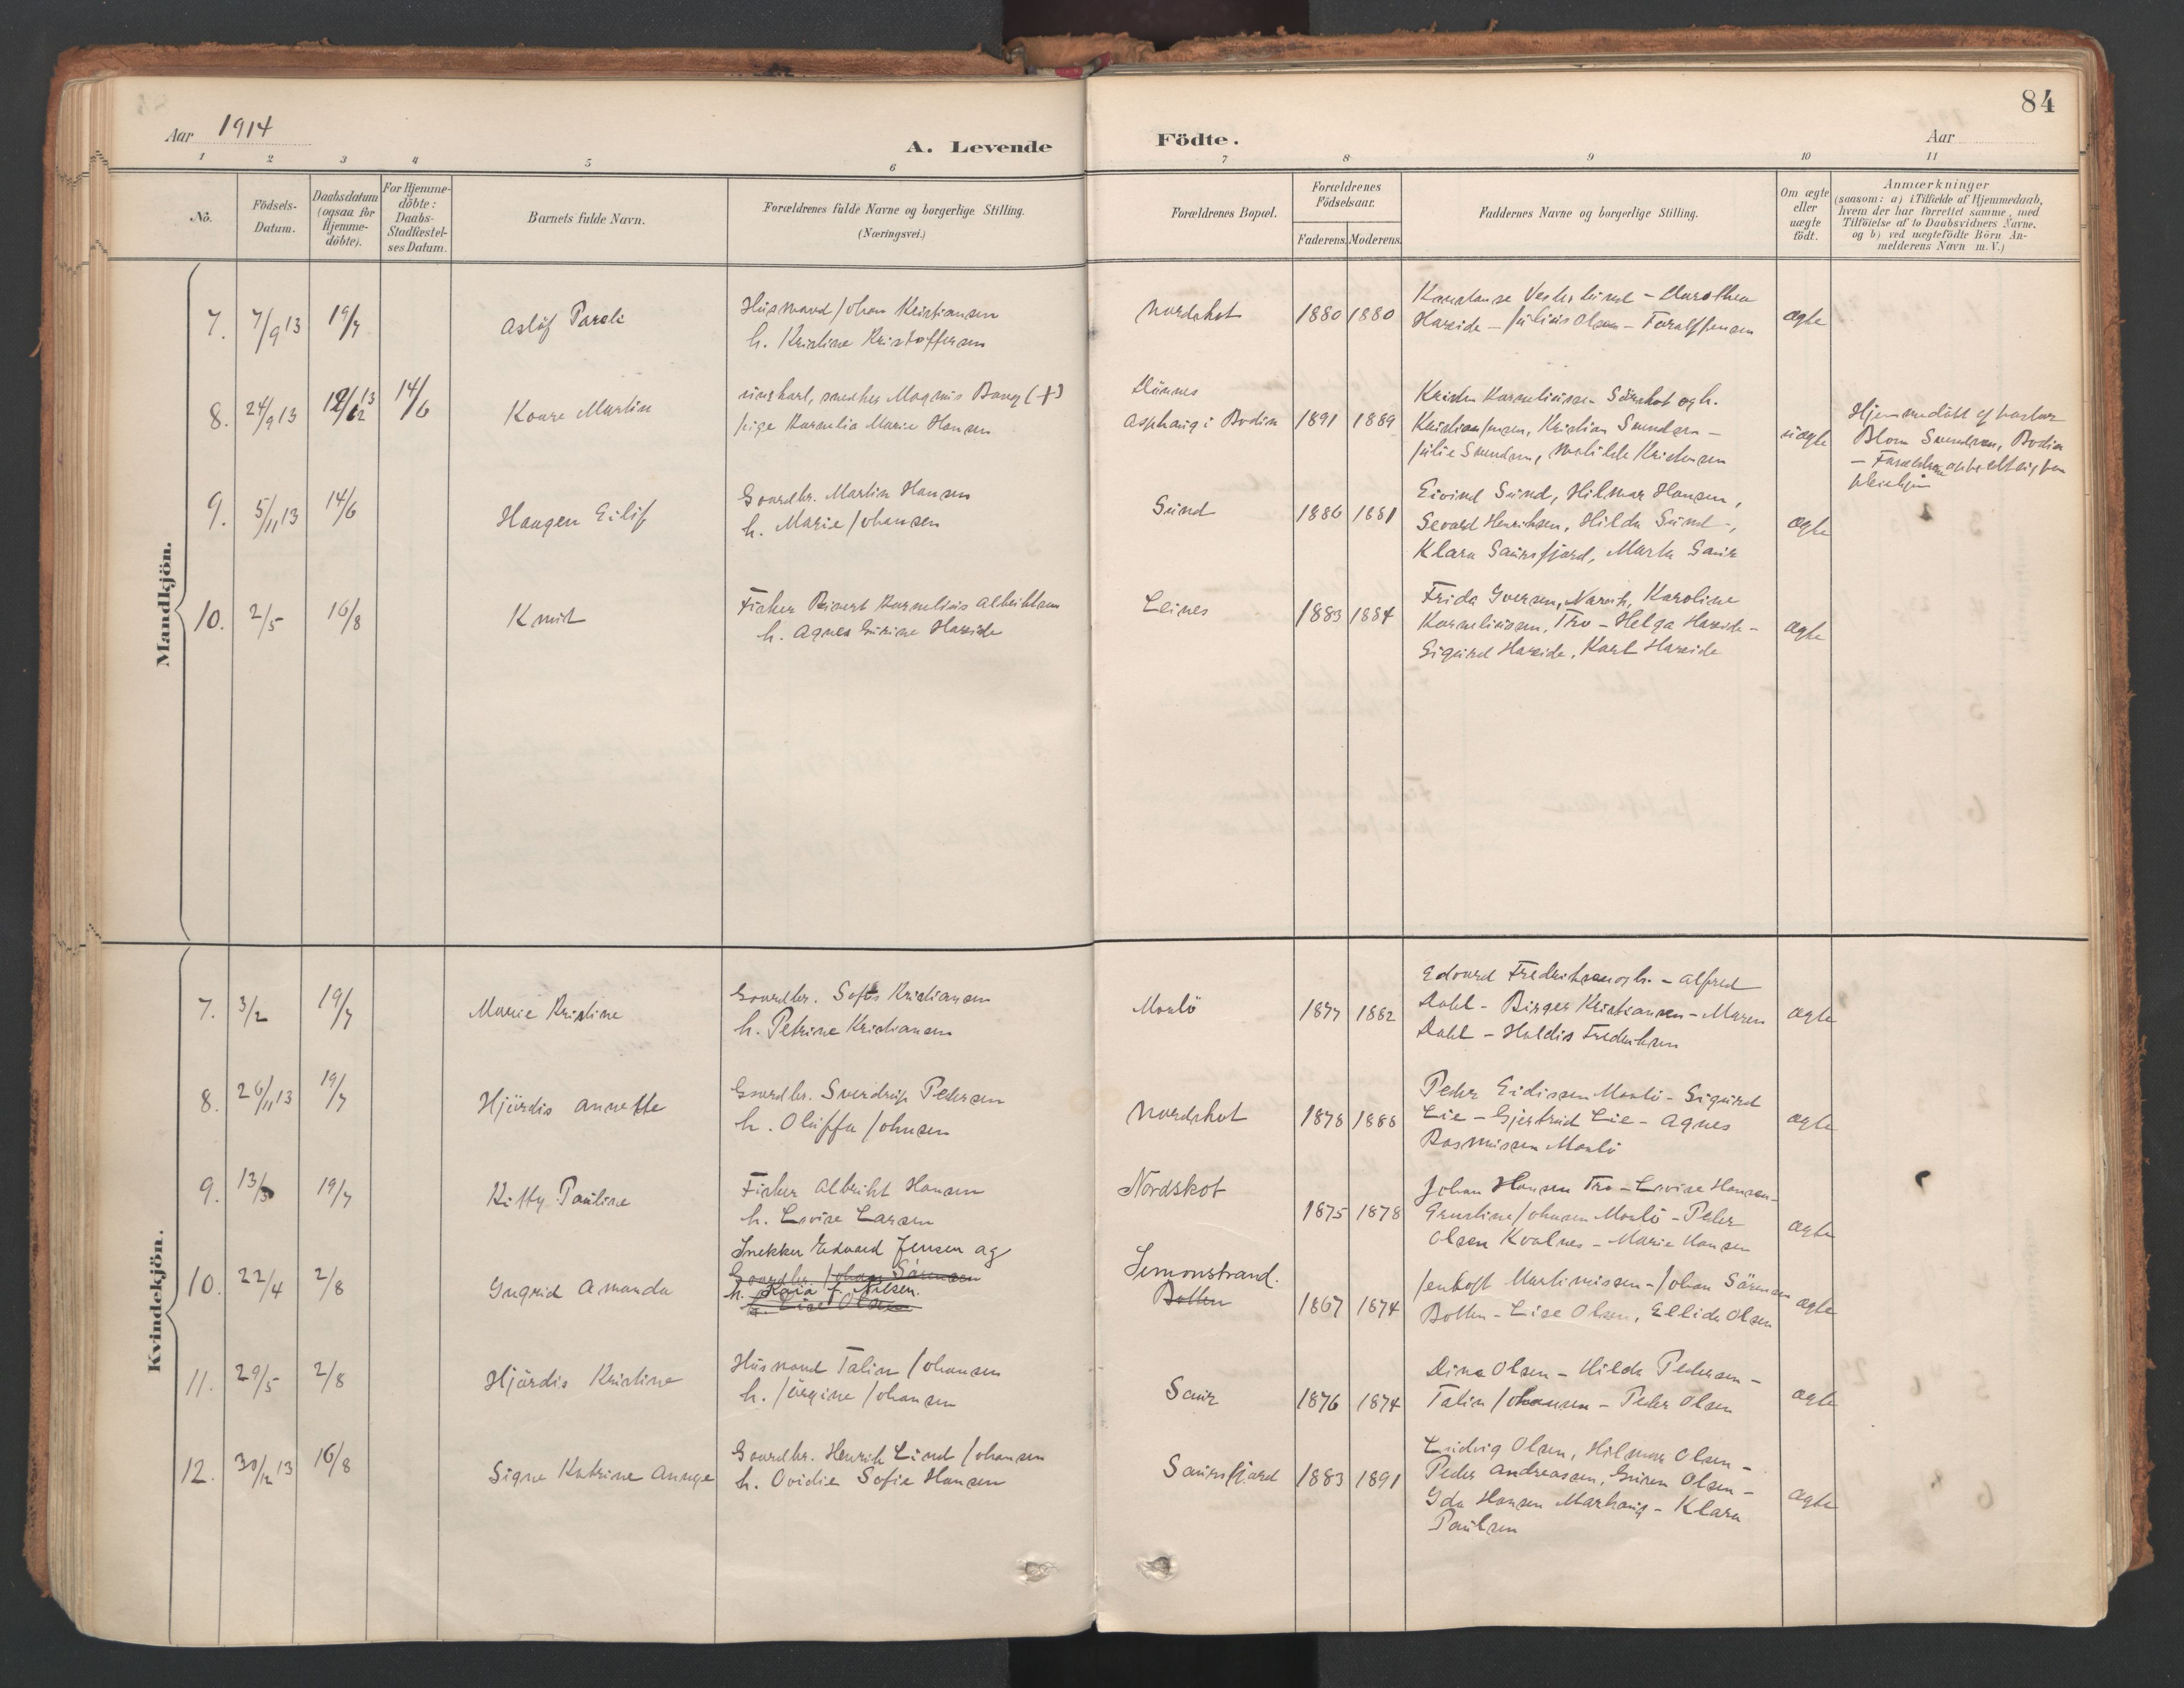 84
Aar 1914
A. Levende Födte.
Aar
1 2 3 4 5 6 7 8 9 10 11
No.
Födsels-Datum.
Daabsdatum (ogsaa for Hjemme-döbte).
For Hjemme-döbte: Daabs-Stadfæstel-ses Datum.
Barnets fulde Navn.
Forældrenes fulde Navne og borgerlige Stilling.
(Næringsvei.)
Forældrenes Bopæl.
Forældrenes Födselsaar.
Faderens. Moderens.
Faddernes Navne og borgerlige Stilling.
Om ægte eller uægte födt.
Anmærkninger
(saasom: a) i Tilfælde af Hjemmedaab,
hvem der har forrettet samme, med
Tilföielse af to Daabsvidners Navne.
og b) ved uægtefödte Börn An-
melderens Navn m.V.)
Mandkjön.
7. 7/9 13 19/7
Husmand Johan Kristiansen
h. Kristine Kristoffersen
Nordskot 1880 1880
Hareide - Julius Olsen -
ægte
8. 24/9 13 14/6
Kaare Martin
ungkarl, snedker Magnus Bang (+)
pige Kornelia Marie Hansen
i Bodin 1891 1889
Kristian Jensen, Kristian Svendsen -
Julie Svendsen, Matilde Kristensen
uægte
Hjemmedöbt af pastor
Blom Svendsen, Bodin
9. 5/11 13 14/6
Haagen Eilif
Gaardbr. Martin Hansen
h. Marie Johansen
Sund 1886 1881
Eivind Sund, Hilmar Hansen,
Sevard Henriksen, Hilda Sund -,
Klara Saursfjord, Marta Saur
ægte
10. 2/5 16/8
Knut
Fisker Sivert Kornelius Albriktsen
h. Agnes Gurine Hareide
Leines 1883 1884
Frida Iversen, Karoline
Korneliussen, Tro - Helga Hareide -
Sigurd Hareide, Karl Hareide
ægte
Kvindekjön.
7. 3/2 19/7
Marie Kristine
Gaardbr. Kristiansen
h. Petrine Kristiansen
Manlö 1877 1882
Edvard Fredriksen og h. - Alfred
Dahl - Birger Kristiansen - Maren
Dahl - Haldis Fredriksen
ægte
8. 26/11 13 19/7
Hjördis Annette
Gaardbr. Sverdrup Pedersen
h. Oluffa Johnsen
Nordskot 1878 1888
Peder Eidissen Manlö - Sigurd
Lie - Gjertrud Lie - Agnes
Rasmussen Manlö
ægte
9. 13/3 19/7
Kitty Pauline
Fisker Albrikt Hansen
h. Lovise Larsen
Nordskot
1875 1878
Johan Hansen Tro - Lovise Hansen -
Ernstine Johnsen Manlö - Peder
Olsen Kvalnes - Marie Hansen
ægte
10. 22/4 2/8
Ingrid Amanda
Snekker Edvard Jensen og
Gaardbr. Johan Sörensen
h. Kaia f. Nilsen.
h. Lise Olsen
Simonstrand.
Botten
1867 1874
Jentoft Martinussen - Johan Sörensen
Botten - Lise Olsen, Ellida Olsen
ægte
11. 29/5 2/8
Hjördis Kristine
Husmand Talin Johansen
h. Jörgine Johansen
Saur 1876 1874
Dina Olsen - Hilda Pedersen -
Talin Johansen - Peder Olsen
ægte
12. 30/12 13 16/8
Signe Katrine
Gaardbr. Henrik Lind Johansen
h. Ovidie Sofie Hansen
Saursfjord 1883 1891
Ludvig Olsen, Hilmar Olsen -
Peder Andreassen, Olsen -
Ida Hansen Markaug - Klara
Paulsen
ægte